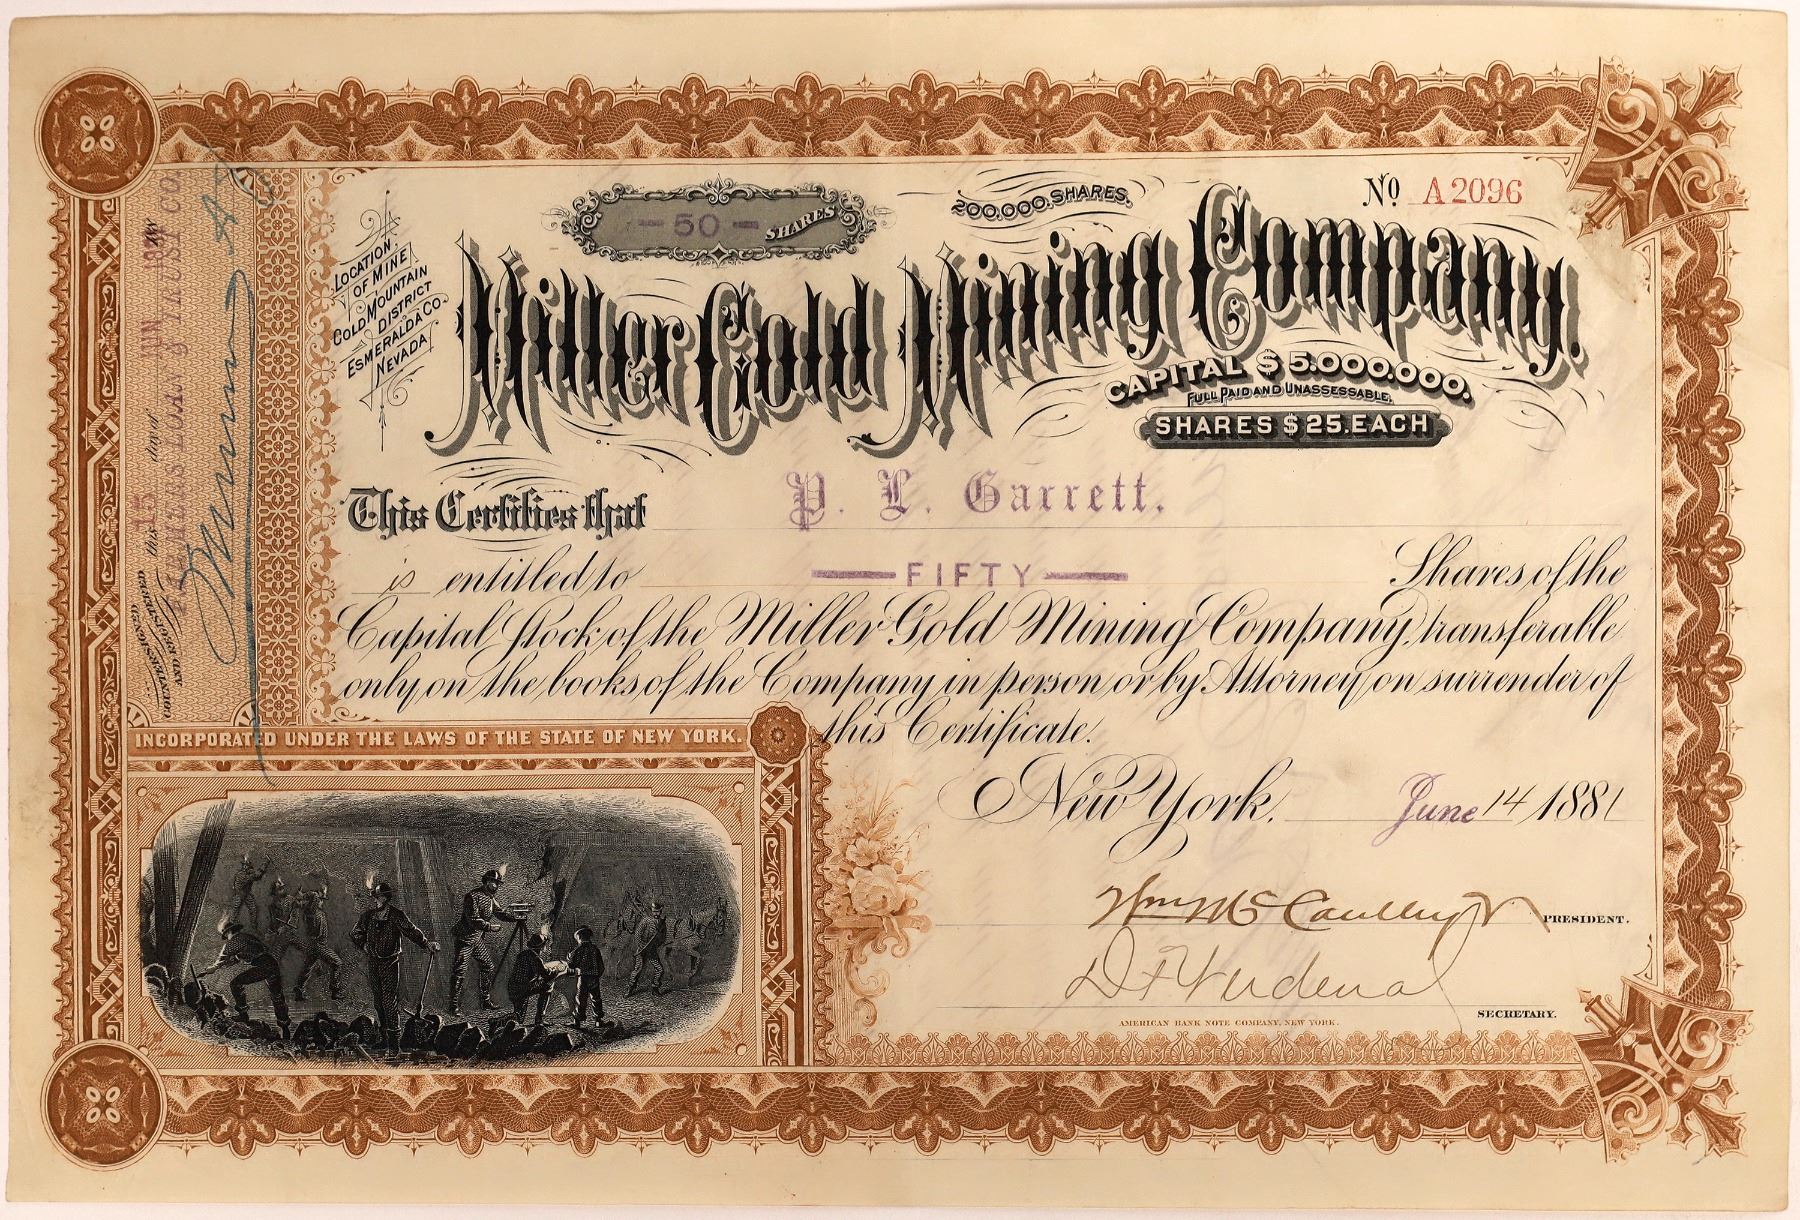 50 SHARES
200,000, SHARES.
No. A2096
LOCATION
OF MINE
GOLD MOUNTAIN
DISTRICT
ESMERALDA CO.
NEVADA
Miller Gold Mining Company.
CAPITAL $5.000.000.
FULL PAID AND UNASSESSABLE.
SHARES $25.EACH
This Certifies that P. L. Garrett.
is entitled to FIFTY Shares of the
Capital Stock of the Miller Gold Mining Company, transferable
only on the books of the Company in person or by Attorney on surrender of
this Certificate.
New York, June 14 1881
Wm McCaulley Jr. PRESIDENT.
SECRETARY.
AMERICAN BANK NOTE COMPANY, NEW YORK.
INCORPORATED UNDER THE LAWS OF THE STATE OF NEW YORK.
COUNTERSIGNED
AND REGISTERED
this 15 day of JUN
LOAN & TRUST CO.